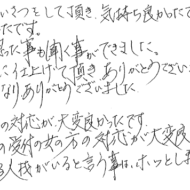 いさつをして頂き、気持ち良かったで
たです。
事も聞く事ができました。
こう仕上げて頂き、ありがとうござい
なりありがとうございました。
の対応が大変良かったです。
の女の方の対応が大変良
る人城がいると言う事は、ホッとしま